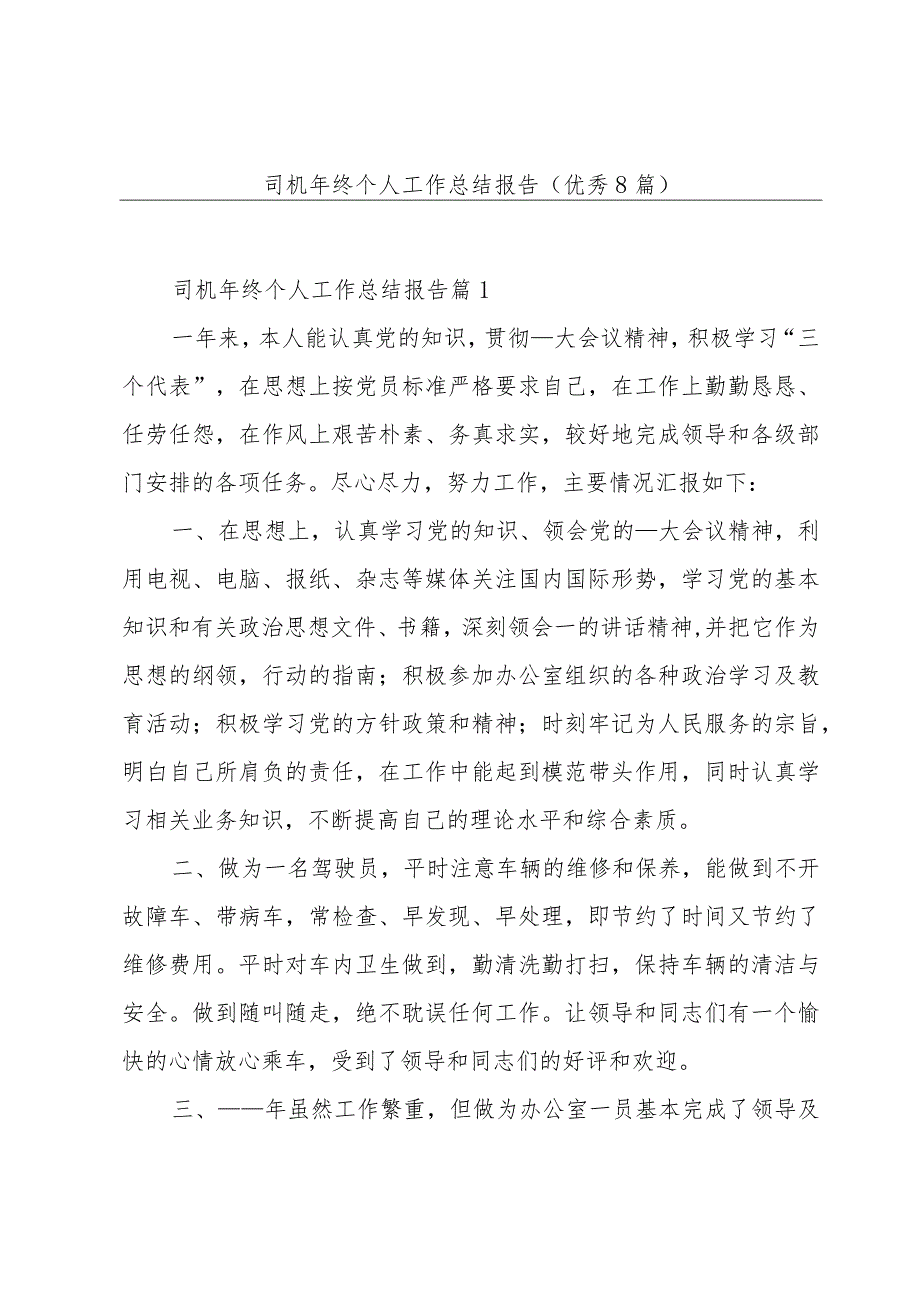 司机年终个人工作总结报告（优秀8篇）
司机年终个人工作总结报告篇1
一年来，本人能认真党的知识，贯彻—大会议精神，积极学习“三
个代表”，在思想上按党员标准严格要求自己，在工作上勤勤恳恳、
任劳任怨，在作风上艰苦朴素、务真求实，较好地完成领导和各级部
门安排的各项任务。尽心尽力，努力工作，主要情况汇报如下：
一、在思想上，认真学习党的知识、领会党的—大会议精神，利
用电视、电脑、报纸、杂志等媒体关注国内国际形势，学习党的基本
知识和有关政治思想文件、书籍，深刻领会一的讲话精神,并把它作为
思想的纲领，行动的指南；积极参加办公室组织的各种政治学习及教
育活动；积极学习党的方针政策和精神；时刻牢记为人民服务的宗旨，
明白自己所肩负的责任，在工作中能起到模范带头作用，同时认真学
习相关业务知识，不断提高自己的理论水平和综合素质。
二、做为一名驾驶员，平时注意车辆的维修和保养，能做到不开
故障车、带病车，常检查、早发现、早处理，即节约了时间又节约了
维修费用。平时对车内卫生做到，勤清洗勤打扫，保持车辆的清洁与
安全。做到随叫随走，绝不耽误任何工作。让领导和同志们有一个愉
快的心情放心乘车，受到了领导和同志们的好评和欢迎。
三、——年虽然工作繁重，但做为办公室一员基本完成了领导及